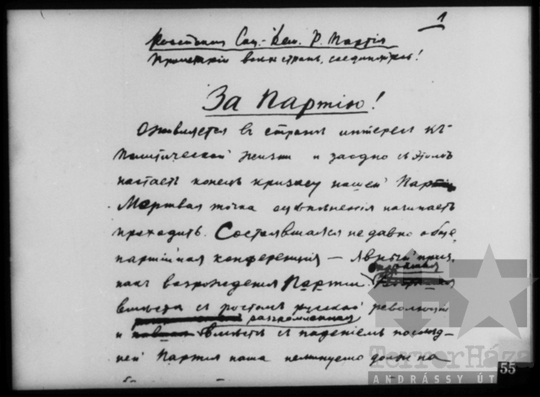 1
Российская Соц.-Дем. Р. Партія
Пролетаріи всѣх стран, соединяйтесь!
За Партію!
Оживляется в странѣ интерес къ
политической жизни и заодно с этим
настает конец кризису нашей Партіи.
Мертвая точка оцѣпенения начинает
проходить. Состоявшаяся недавно обще-
партийная конференция — явный приз-
нак возрождения Партии.
вмѣстѣ с ростом русской революции
разгромленная
и вмѣстѣ с падением послед-
ней Партия наша неминуемо должна
Terror Háza
ANDRÁSSY ÚT
55